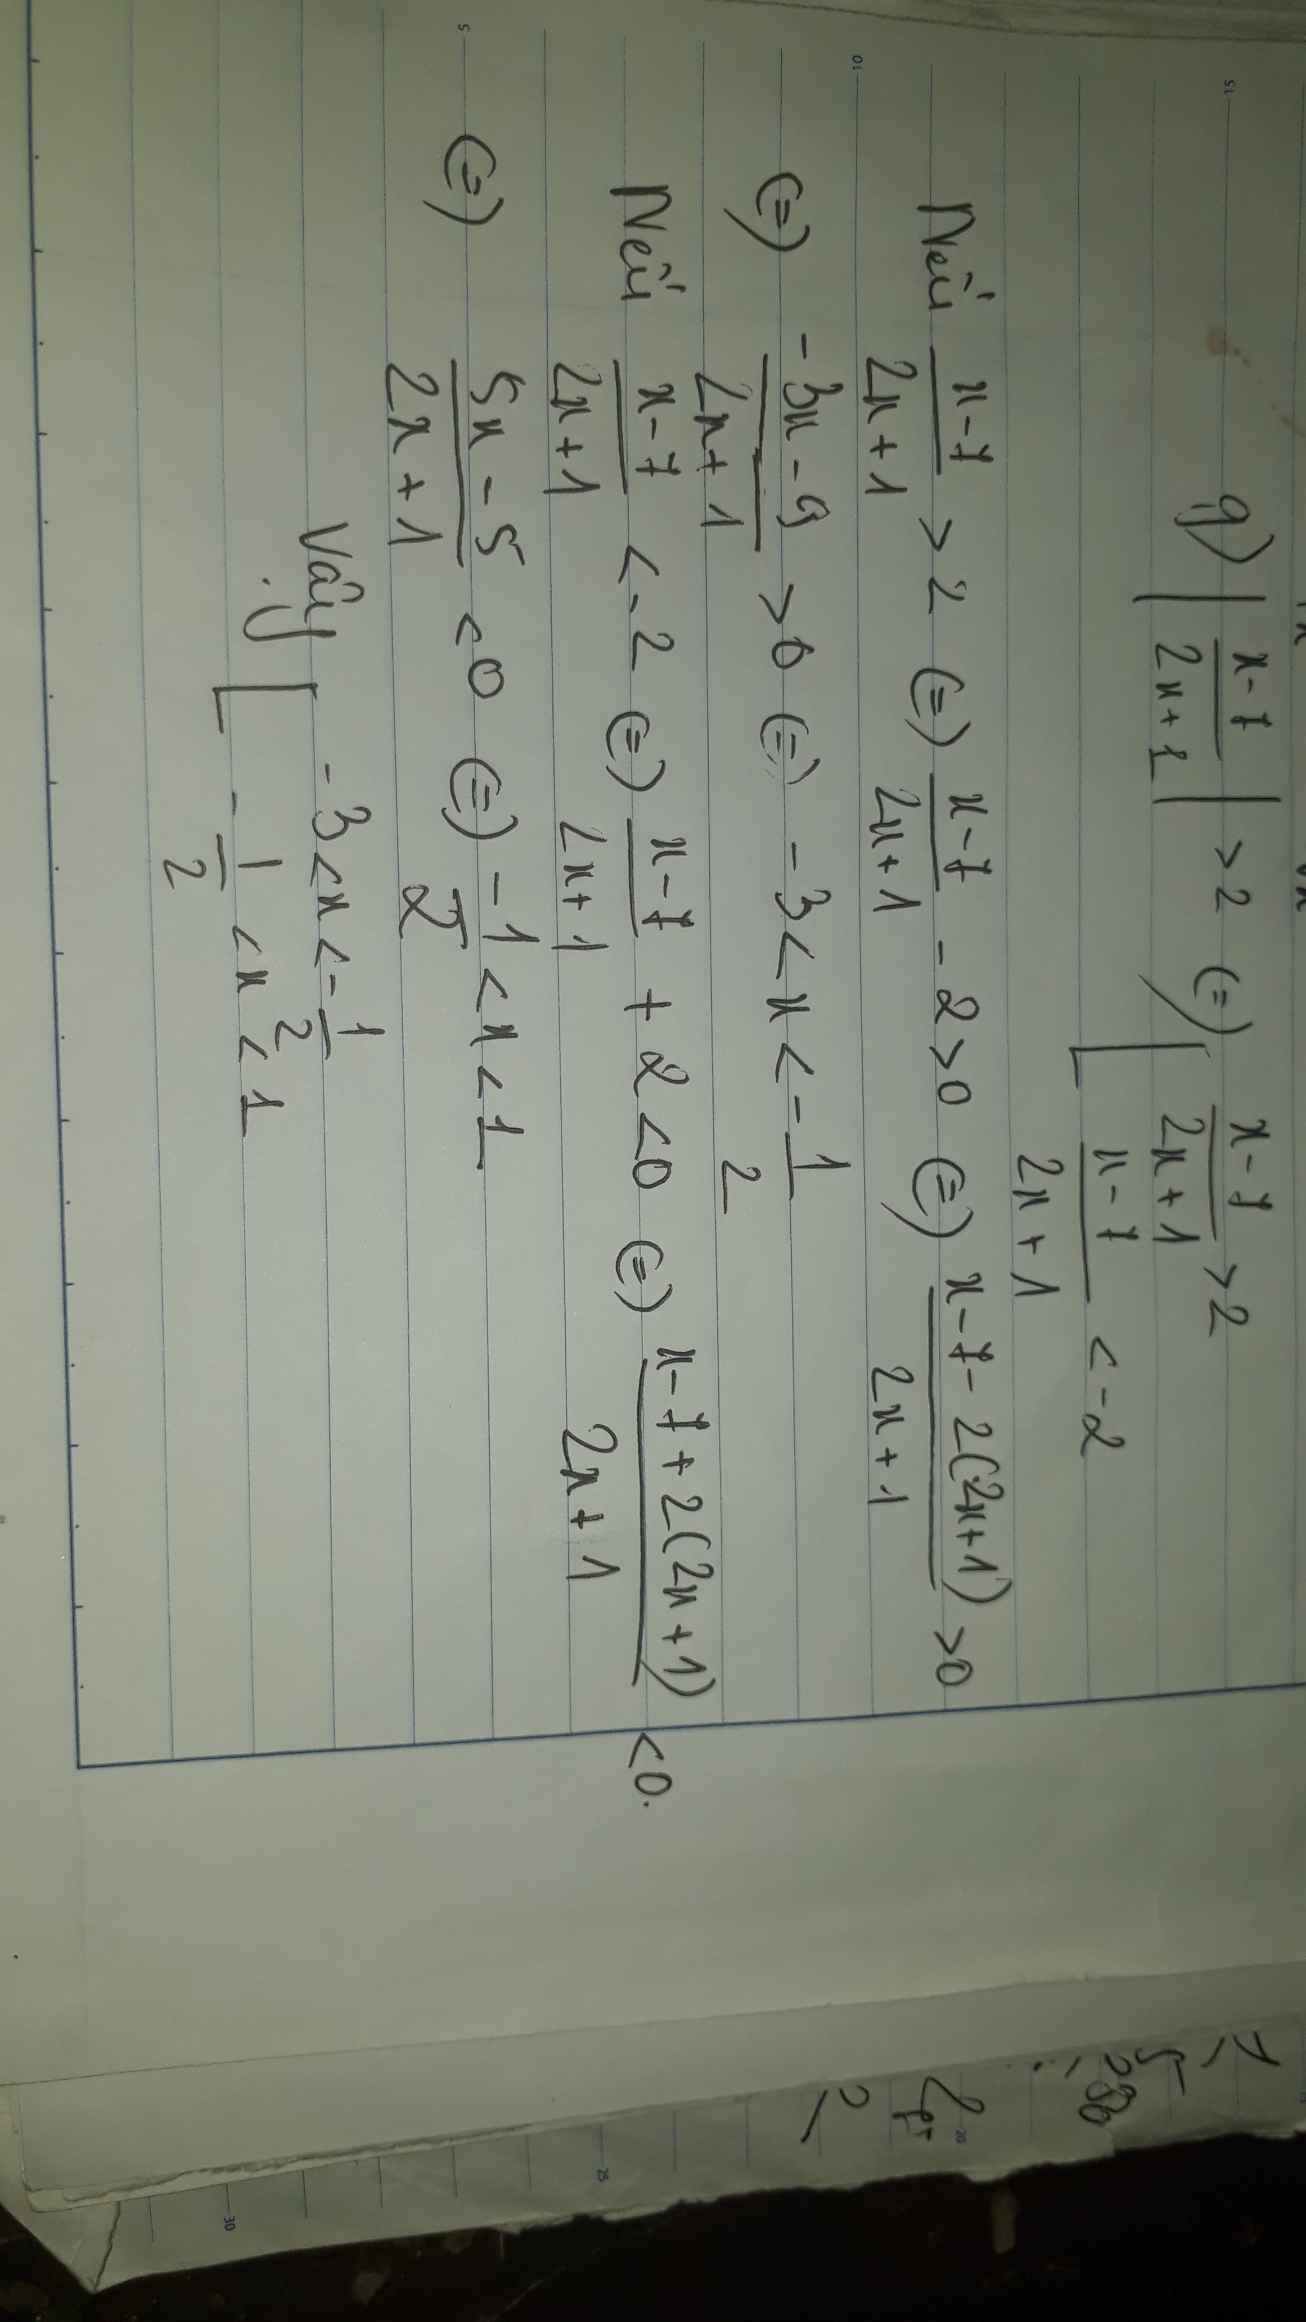 g) | (x-7)/(2x+1) | > 2 (=) [ (x-7)/(2x+1) > 2
(x-7)/(2x+1) < -2
Nếu (x-7)/(2x+1) > 2 (=) (x-7)/(2x+1) - 2 > 0 (=) (x-7-2(2x+1))/(2x+1) > 0
(=) (-3x-9)/(2x+1) > 0 (=) -3 < x < -1/2
Nếu (x-7)/(2x+1) < -2 (=) (x-7)/(2x+1) + 2 < 0 (=) (x-7+2(2x+1))/(2x+1) < 0.
(=) (5x-5)/(2x+1) < 0 (=) -1/2 < x < 1
Vậy [ -3 < x < -1/2
-1/2 < x < 1